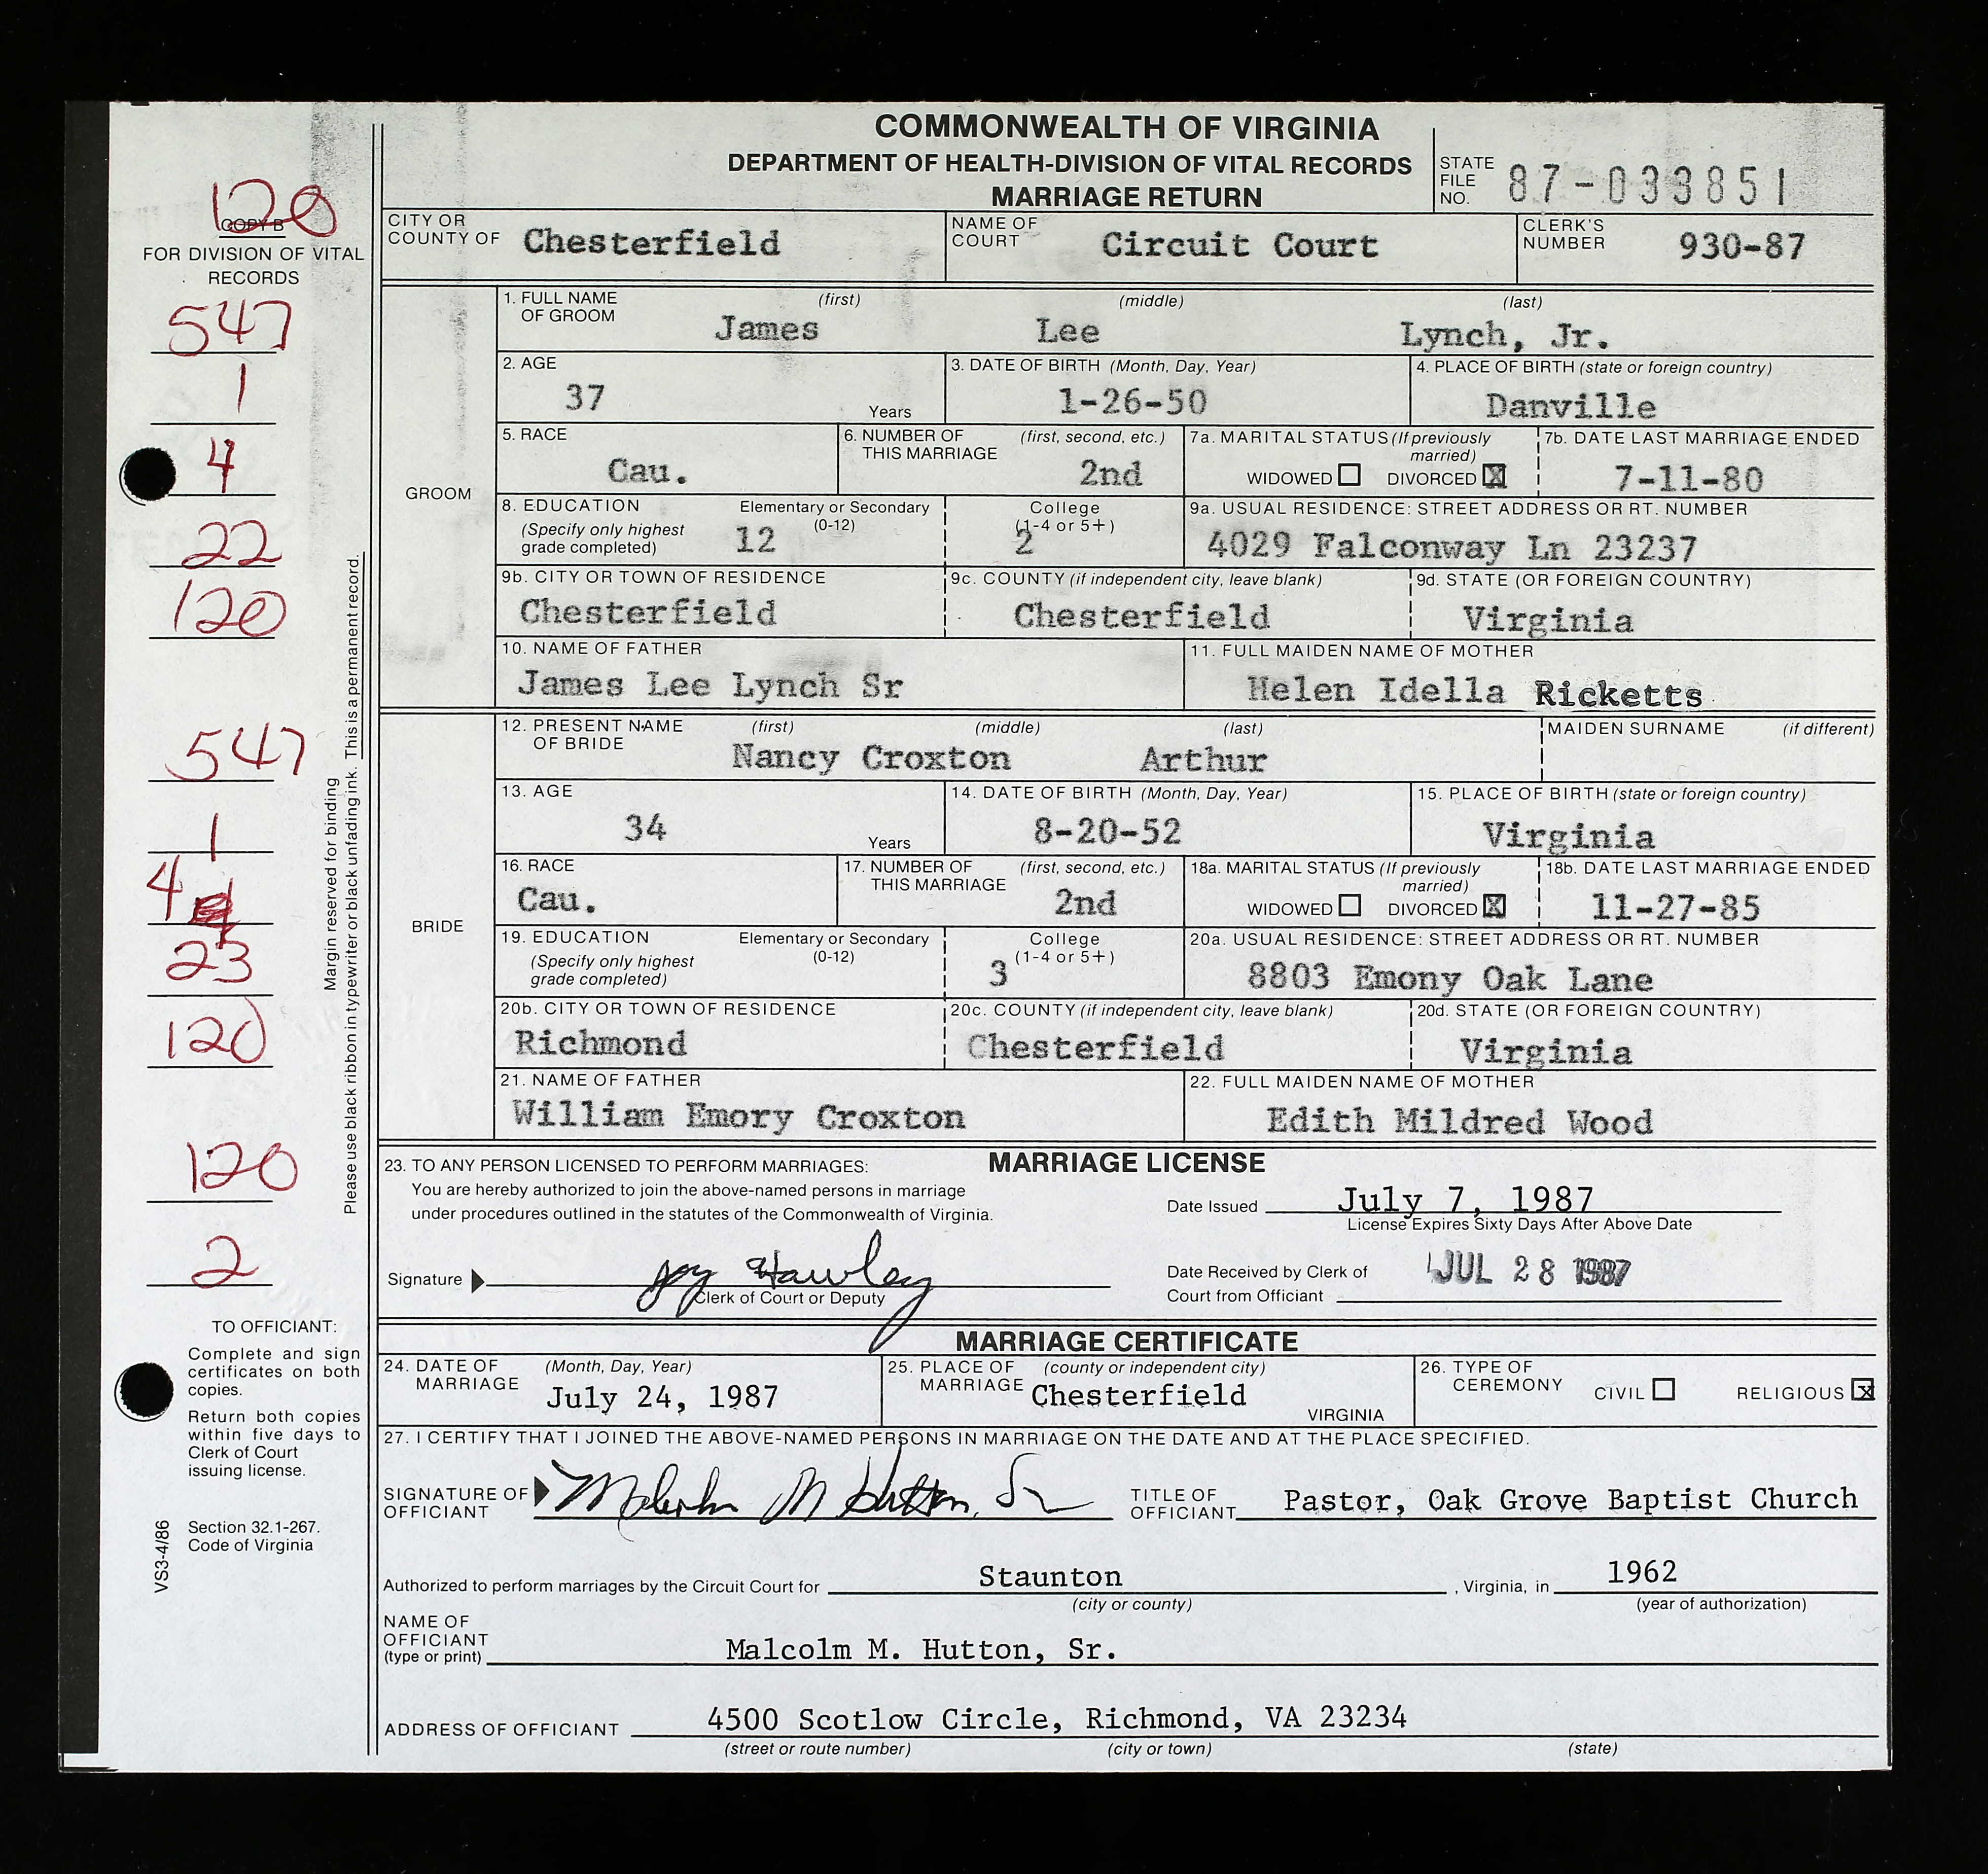 COMMONWEALTH OF VIRGINIA
DEPARTMENT OF HEALTH-DIVISION OF VITAL RECORDS
MARRIAGE RETURN
STATE FILE NO. 87-033851
120
COPY B
FOR DIVISION OF VITAL RECORDS
547
1
4
22
120
547
1
4
23
120
120
2
Margin reserved for binding
Please use black ribbon in typewriter or black unfading ink. This is a permanent record.
TO OFFICIANT:
Complete and sign
certificates on both
copies.
Return both copies
within five days to
Clerk of Court
issuing license.
Section 32.1-267.
Code of Virginia
VS3-4/86
CITY OR COUNTY OF Chesterfield
NAME OF COURT Circuit Court
CLERK'S NUMBER 930-87
GROOM
1. FULL NAME OF GROOM (first) (middle) (last)
James Lee Lynch, Jr.
2. AGE 37 Years
3. DATE OF BIRTH (Month, Day, Year) 1-26-50
4. PLACE OF BIRTH (state or foreign country) Danville
5. RACE Cau.
6. NUMBER OF THIS MARRIAGE (first, second, etc.) 2nd
7a. MARITAL STATUS (If previously married) WIDOWED ☐ DIVORCED ☒
7b. DATE LAST MARRIAGE ENDED 7-11-80
8. EDUCATION (Specify only highest grade completed) Elementary or Secondary (0-12) 12
College (1-4 or 5+) 2
9a. USUAL RESIDENCE: STREET ADDRESS OR RT. NUMBER
4029 Falconway Ln 23237
9b. CITY OR TOWN OF RESIDENCE Chesterfield
9c. COUNTY (if independent city, leave blank) Chesterfield
9d. STATE (OR FOREIGN COUNTRY) Virginia
10. NAME OF FATHER
James Lee Lynch Sr
11. FULL MAIDEN NAME OF MOTHER
Helen Idella Ricketts
BRIDE
12. PRESENT NAME OF BRIDE (first) (middle) (last)
Nancy Croxton Arthur
MAIDEN SURNAME (if different)
13. AGE 34 Years
14. DATE OF BIRTH (Month, Day, Year) 8-20-52
15. PLACE OF BIRTH (state or foreign country) Virginia
16. RACE Cau.
17. NUMBER OF THIS MARRIAGE (first, second, etc.) 2nd
18a. MARITAL STATUS (If previously married) WIDOWED ☐ DIVORCED ☒
18b. DATE LAST MARRIAGE ENDED 11-27-85
19. EDUCATION (Specify only highest grade completed) Elementary or Secondary (0-12)
College (1-4 or 5+) 3
20a. USUAL RESIDENCE: STREET ADDRESS OR RT. NUMBER
8803 Emony Oak Lane
20b. CITY OR TOWN OF RESIDENCE Richmond
20c. COUNTY (if independent city, leave blank) Chesterfield
20d. STATE (OR FOREIGN COUNTRY) Virginia
21. NAME OF FATHER
William Emory Croxton
22. FULL MAIDEN NAME OF MOTHER
Edith Mildred Wood
MARRIAGE LICENSE
23. TO ANY PERSON LICENSED TO PERFORM MARRIAGES:
You are hereby authorized to join the above-named persons in marriage
under procedures outlined in the statutes of the Commonwealth of Virginia.
Date Issued July 7, 1987
License Expires Sixty Days After Above Date
Signature Joy Hawley
Clerk of Court or Deputy
Date Received by Clerk of Court from Officiant JUL 28 1987
MARRIAGE CERTIFICATE
24. DATE OF MARRIAGE (Month, Day, Year) July 24, 1987
25. PLACE OF MARRIAGE (county or independent city) Chesterfield VIRGINIA
26. TYPE OF CEREMONY CIVIL ☐ RELIGIOUS ☒
27. I CERTIFY THAT I JOINED THE ABOVE-NAMED PERSONS IN MARRIAGE ON THE DATE AND AT THE PLACE SPECIFIED.
SIGNATURE OF OFFICIANT Malcolm M Hutton, Sr
TITLE OF OFFICIANT Pastor, Oak Grove Baptist Church
Authorized to perform marriages by the Circuit Court for Staunton, Virginia, in 1962
(city or county) (year of authorization)
NAME OF OFFICIANT (type or print) Malcolm M. Hutton, Sr.
ADDRESS OF OFFICIANT 4500 Scotlow Circle, Richmond, VA 23234
(street or route number) (city or town) (state)